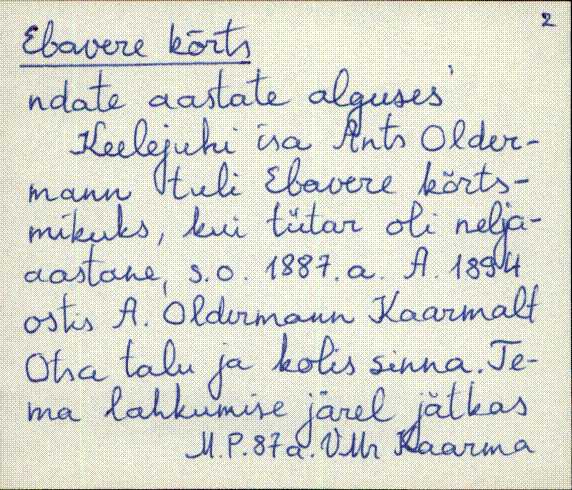 2
Ebavere kõrts
ndate aastate alguses
Keelejuhi isa Ants Older-
mann tuli Ebavere kõrts-
mikuks, kui tütar oli nelja-
aastane, s.o. 1887.a. A. 1894
ostis A. Oldermann Kaarmalt
Otsa talu ja kolis sinna. Te-
ma lahkumise järel jätkas
M.P. 87 a. VMr Kaarma